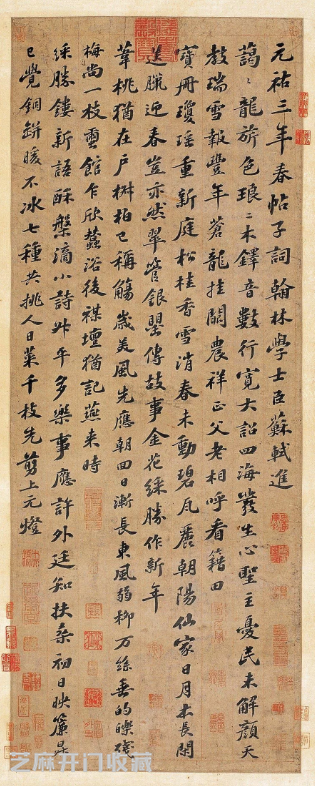 元祐三年春帖子詞翰林學士臣蘇軾進
藹〻龍旂色琅〻木鐸音數行寬大詔四海發生心聖主憂民未解顏天
教瑞雪報豐年蒼龍挂闕農祥正父老相呼看籍田
寶冊瓊瑤重新庭松桂香雪消春未動碧瓦麗朝陽仙家日月本長閑
送臘迎春豈亦然翠管銀罌傳故事金花綵勝作新年
葦桃猶在戶椒柏已稱觴歲美風先應朝回日漸長東風弱柳万絲垂的皪殘
梅尚一枝雪館乍欣蠶浴後禖壇猶記燕來時
綵勝鏤新語酥盤滴小詩升平多樂事應許外廷知扶桑初日映簾昇
已覺銅缾暖不冰七種共挑人日菜千枝先剪上元燈
芝麻开门收藏